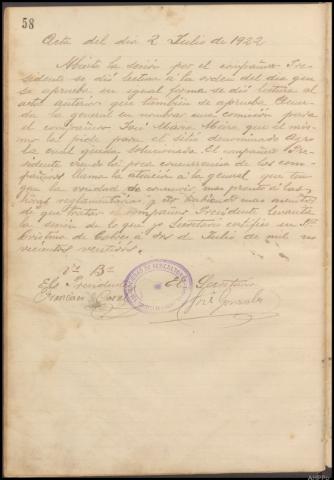 58
Acta del dia 2 Julio de 1922
Abierta la sesión por el compañero Pre-
sidente se dió lectura a la orden del dia que
se aprueba, en igual forma se dió lectura al
acta anterior que también se aprueba. Acuer-
da la general en nombrar una comisión para
el compañero José María
la pide para el sitio denominado
la cual queda solucionada. El compañero Pre-
sidente viendo la poca concurrencia de los com-
pañeros llama la atención a la general, que ten-
gan la bondad de concurrir mas pronto a las
horas reglamentarias; y no habiendo mas asuntos
de que tratar el compañero Presidente levanta
la sesión de lo que yo Secretario certifico en Sta
Cristina de Cobres a dos de Julio de mil no-
vecientos veintidós.
Vº Bº
El Presidente El Secretario
Francisco José Gonzalez